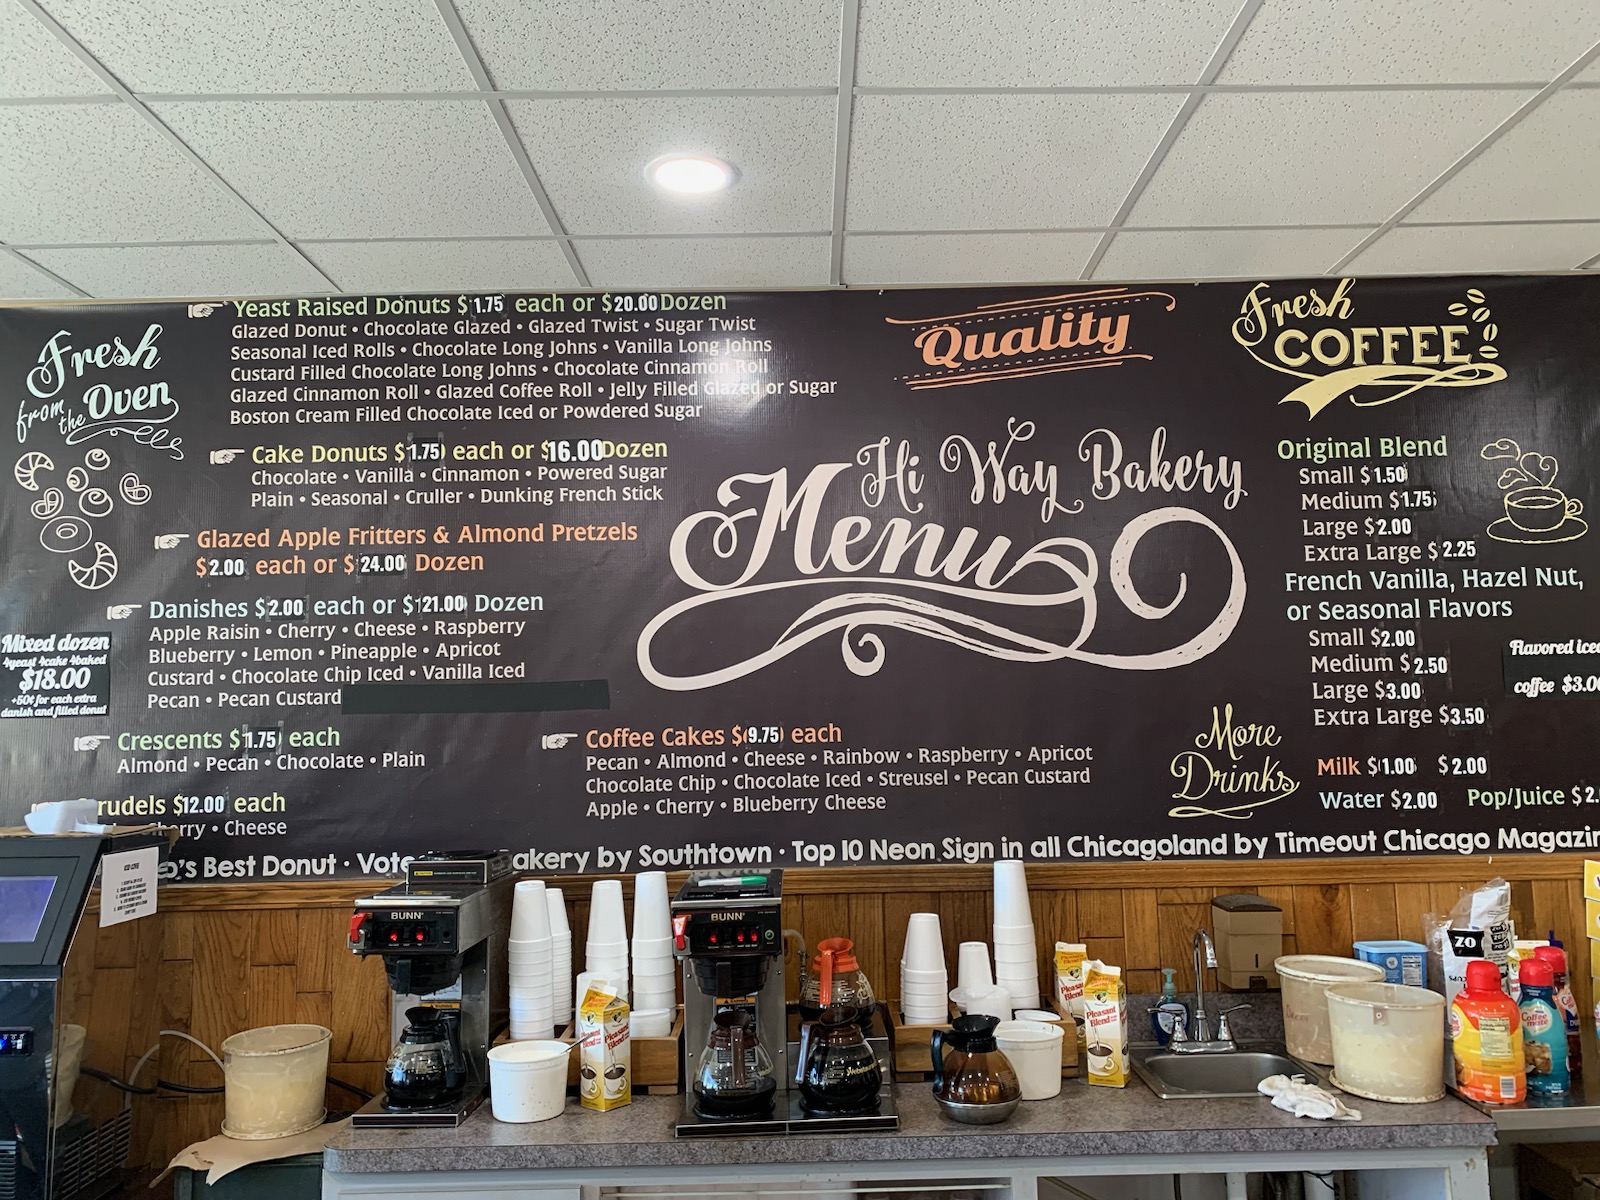 Fresh
from the Oven
Yeast Raised Donuts $1.75 each or $20.00 Dozen
Glazed Donut • Chocolate Glazed • Glazed Twist • Sugar Twist
Seasonal Iced Rolls • Chocolate Long Johns • Vanilla Long Johns
Custard Filled Chocolate Long Johns • Chocolate Cinnamon Roll
Glazed Cinnamon Roll • Glazed Coffee Roll • Jelly Filled Glazed or Sugar
Boston Cream Filled Chocolate Iced or Powdered Sugar
Cake Donuts $1.75 each or $16.00 Dozen
Chocolate • Vanilla • Cinnamon • Powered Sugar
Plain • Seasonal • Cruller • Dunking French Stick
Glazed Apple Fritters & Almond Pretzels
$2.00 each or $24.00 Dozen
Danishes $2.00 each or $21.00 Dozen
Apple Raisin • Cherry • Cheese • Raspberry
Blueberry • Lemon • Pineapple • Apricot
Custard • Chocolate Chip Iced • Vanilla Iced
Pecan • Pecan Custard
Mixed dozen
4yeast 4cake 4baked
$18.00
+50¢ for each extra
danish and filled donut
Crescents $1.75 each
Almond • Pecan • Chocolate • Plain
rudels $12.00 each
rry • Cheese
Quality
Hi Way Bakery
Menu
Coffee Cakes $9.75 each
Pecan • Almond • Cheese • Rainbow • Raspberry • Apricot
Chocolate Chip • Chocolate Iced • Streusel • Pecan Custard
Apple • Cherry • Blueberry Cheese
Fresh
COFFEE
Original Blend
Small $1.50
Medium $1.75
Large $2.00
Extra Large $2.25
French Vanilla, Hazel Nut,
or Seasonal Flavors
Small $2.00
Medium $2.50
Large $3.00
Extra Large $3.50
Flavored iced
coffee $3.00
More
Drinks
Milk $1.00 $2.00
Water $2.00 Pop/Juice $2.
's Best Donut · Vote akery by Southtown · Top 10 Neon Sign in all Chicagoland by Timeout Chicago Magazin
BUNN
BUNN
Pleasant
Blend
Pleasant
Blend
Pleasant
Blend
ZO
Coffee
mate